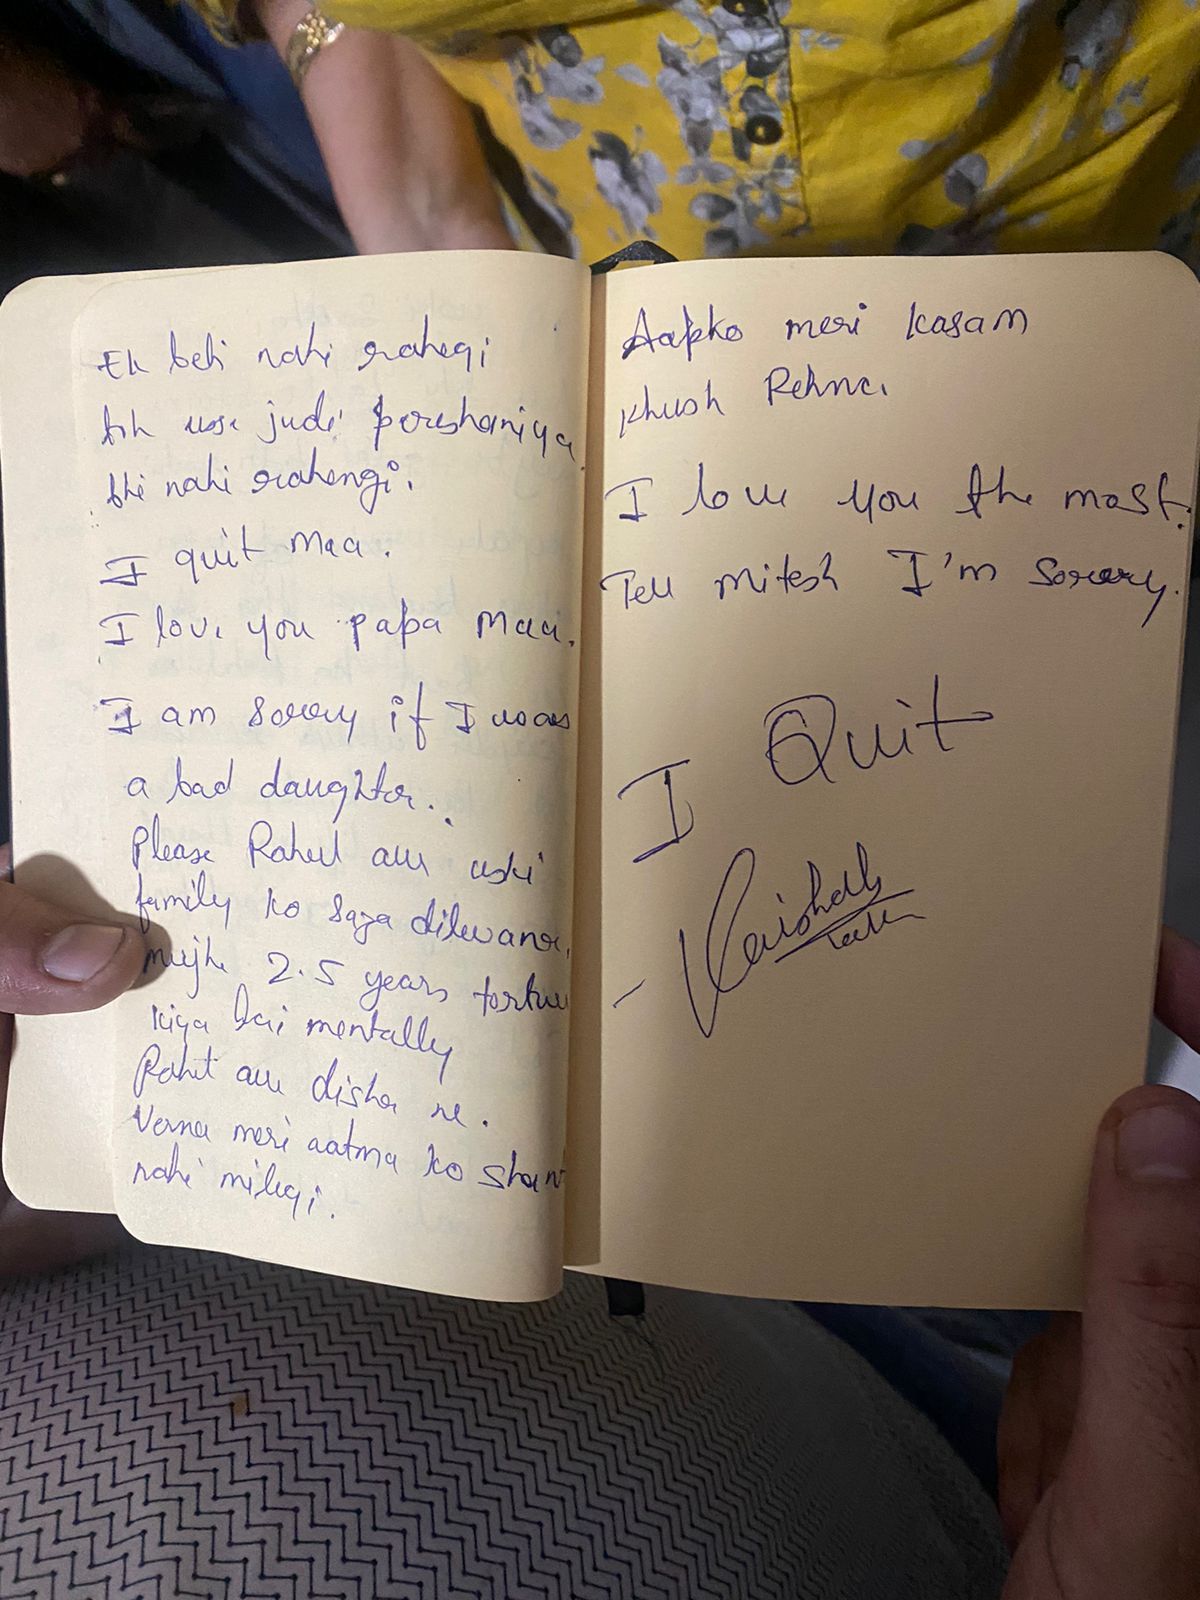 Ek beti nahi rahegi
toh usse judi pareshaniya
bhi nahi rahengi.
I quit Maa.
I love you papa Maa.
I am sorry if I was
a bad daughter.
Please Rahul aur uski
family ko saza dilwana.
mujhe 2.5 years torture
kiya hai mentally
Rahul aur disha ne.
Verna meri aatma ko shanti
nahi milegi.
Aapko meri kasam
khush Rehna.
I love you the most.
Tell mitesh I'm sorry.
I Quit
- Vaishali